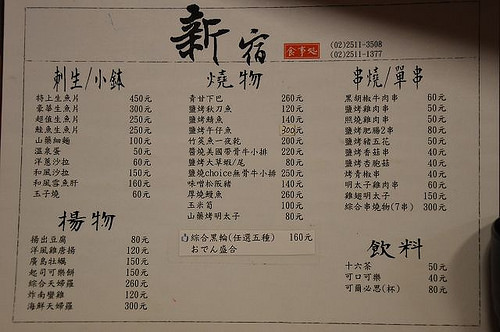 新宿
食事処
(02)2511-3508
(02)2511-1377
刺生/小缽
特上生魚片 450元
豪華生魚片 300元
超值生魚片 250元
鮭魚生魚片 250元
山藥細麵 100元
溫泉蛋 50元
洋蔥沙拉 60元
和風沙拉 150元
和風雪魚肝 160元
玉子燒 60元
揚物
揚出豆腐 80元
洋風雞唐揚 120元
廣島牡蠣 150元
起司可樂餅 150元
綜合天婦羅 260元
炸南蠻雞 120元
海鮮天婦羅 300元
燒物
青甘下巴 260元
鹽烤秋刀魚 120元
鹽烤鯖魚 140元
鹽烤午仔魚 300元
竹筴魚一夜乾 200元
醬燒美國帶骨牛小排 220元
鹽烤大草蝦/尾 80元
鹽燒choice無骨牛小排 250元
味噌松阪豬 140元
厚燒鰻魚 260元
玉米筍 100元
山藥烤明太子 80元
綜合黑輪(任選五種) 160元
おでん盛合
串燒/單串
黑胡椒牛肉串 60元
鹽烤雞肉串 50元
照燒雞肉串 50元
鹽烤肥腸2串 80元
鹽烤豬五花 50元
鹽烤香菇串 40元
鹽烤杏鮑菇 40元
烤青椒串 40元
明太子雞肉串 60元
雞翅明太子 150元
綜合串燒物(7串) 300元
飲料
十六茶 50元
可口可樂 40元
可爾必思(杯) 80元